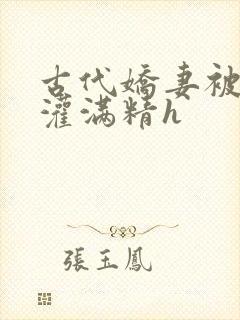 古代嬌妻被
灌滿精h
張玉鳳